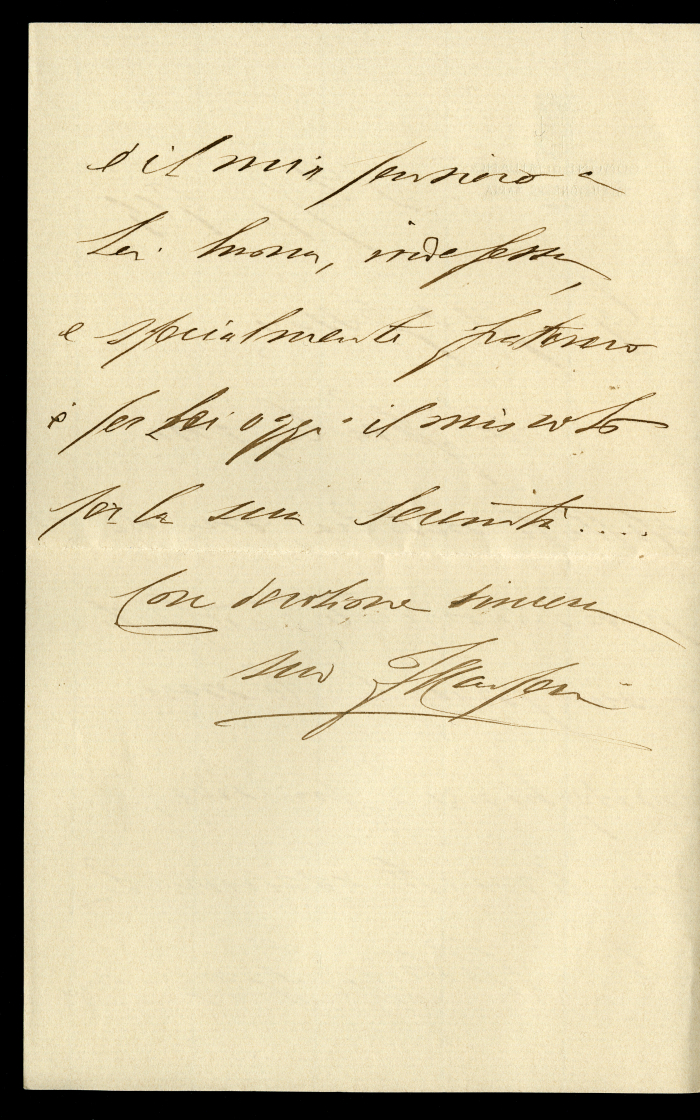 è il mio pensiero a
Lei buona, indefessa,
e specialmente fraterno
è per Lei oggi il mio voto
per la sua serenità....
Con devozione sincera
suo